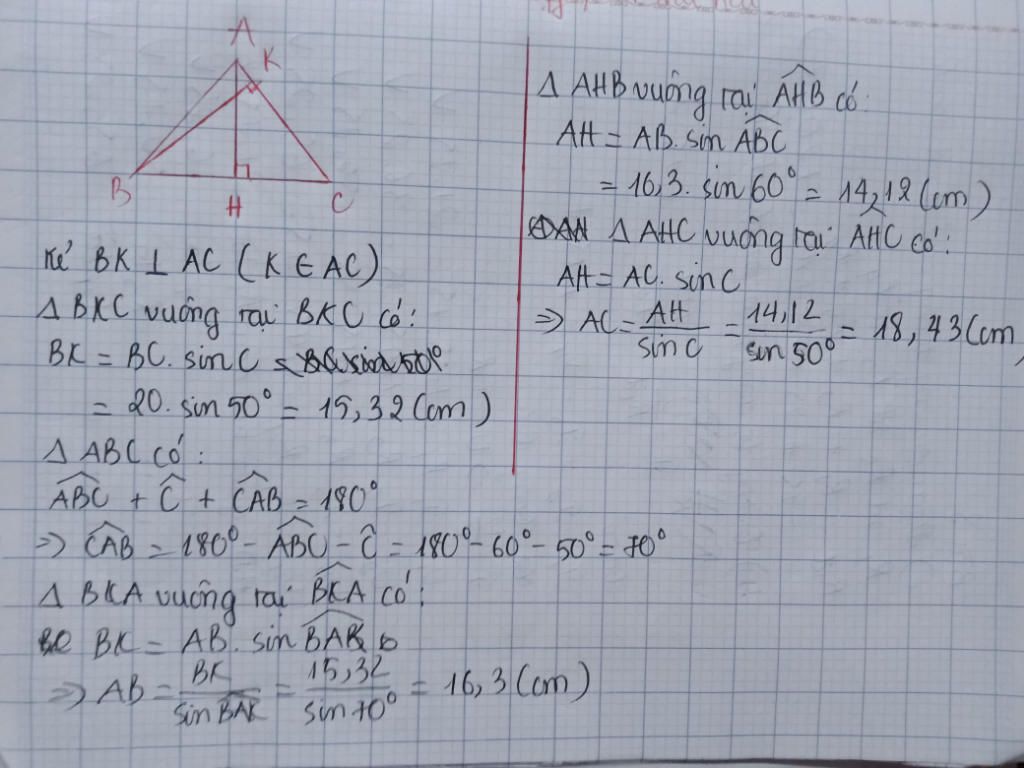 A
K
B
H
C
Kẻ BK ⊥ AC (K ∈ AC)
Δ BKC vuông tại BKC có:
BK = BC. sin C = BC.sin 50°
= 20. sin 50° = 15,32 (cm)
Δ ABC có:
\widehat{ABC} + \widehat{C} + \widehat{CAB} = 180°
=> \widehat{CAB} = 180° - \widehat{ABC} - \widehat{C} = 180° - 60° - 50° = 70°
Δ BKA vuông tại \widehat{BKA} có:
BK = AB. sin \widehat{BAK}
=> AB = \frac{BK}{sin BAK} = \frac{15,32}{sin 70°} = 16,3 (cm)
Δ AHB vuông tại \widehat{AHB} có:
AH = AB. sin \widehat{ABC}
= 16,3. sin 60° = 14,12 (cm)
Δ AHC vuông tại \widehat{AHC} có:
AH = AC. sin C
=> AC = \frac{AH}{sin C} = \frac{14,12}{sin 50°} = 18,43 (cm)